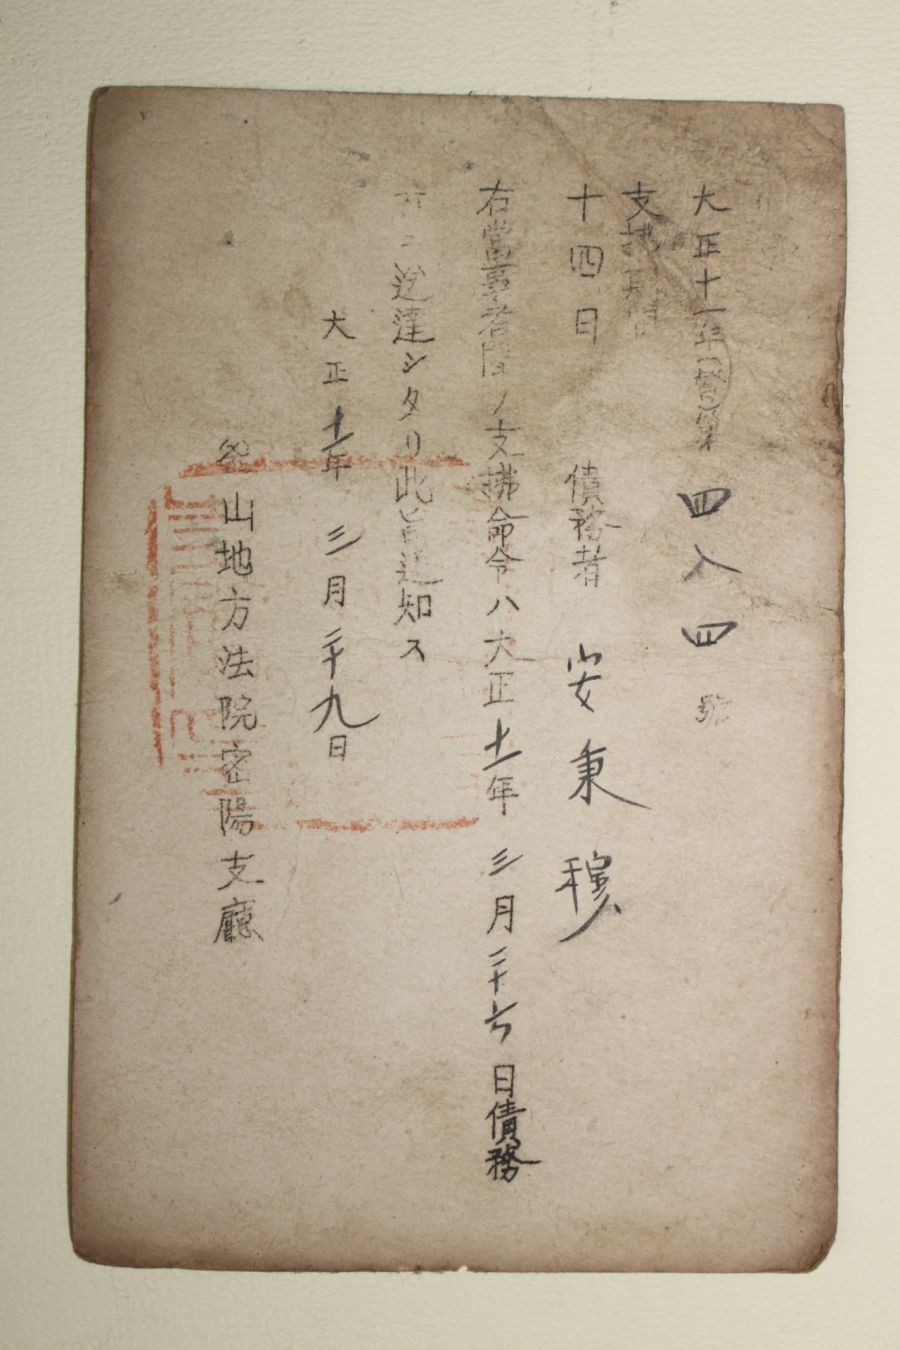 大正十一年(督)第四八四號
支拂期間
十四日
債務者 安秉穆
右當事者間ノ支拂命令ハ大正十一年三月二十六日債務
者ニ送達シタリ此旨通知ス
大正十一年三月二十九日
釜山地方法院密陽支廳